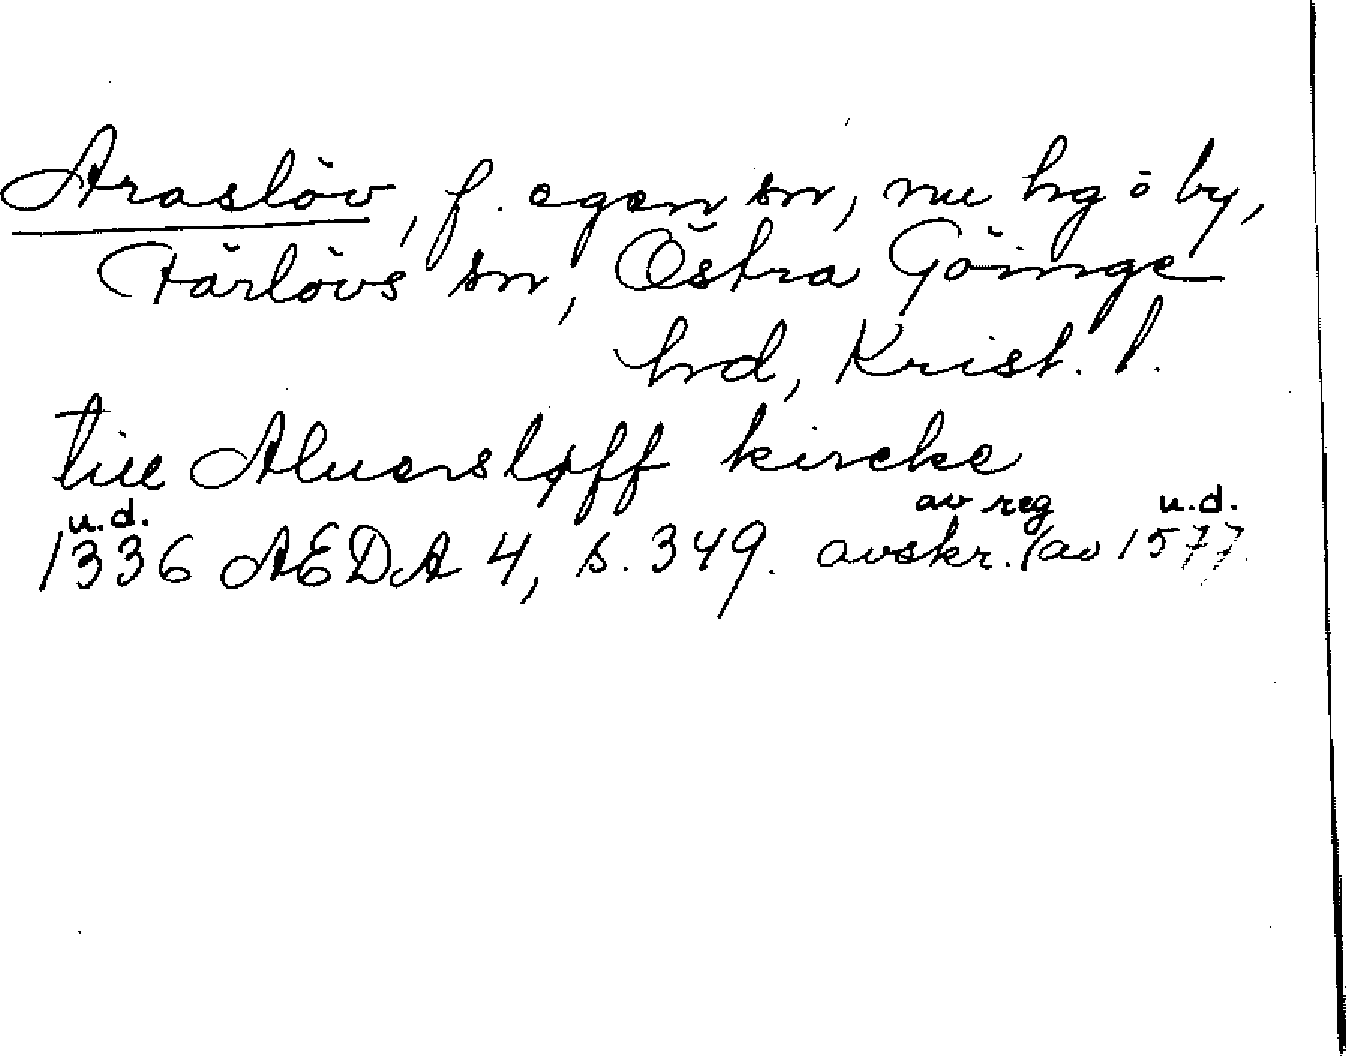 Araslöv, f. egen sn, nu hg o by,
Färlövs sn, Östra Göinge
hrd, Krist. l.
till Aluersløff kircke
u.d. av reg u.d.
1336 AEDA 4, s. 349. avskr. (av 1577.